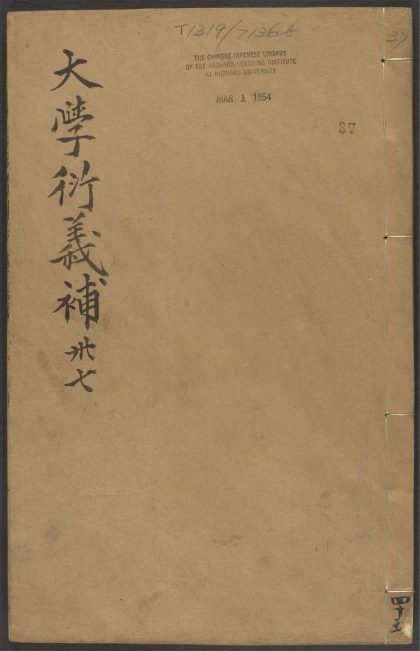 T1319/7136A
37
THE CHINESE-JAPANESE LIBRARY
OF THE HARVARD-YENCHING INSTITUTE
AT HARVARD UNIVERSITY
MAR 1 1954
37
大學衍義補 卅七